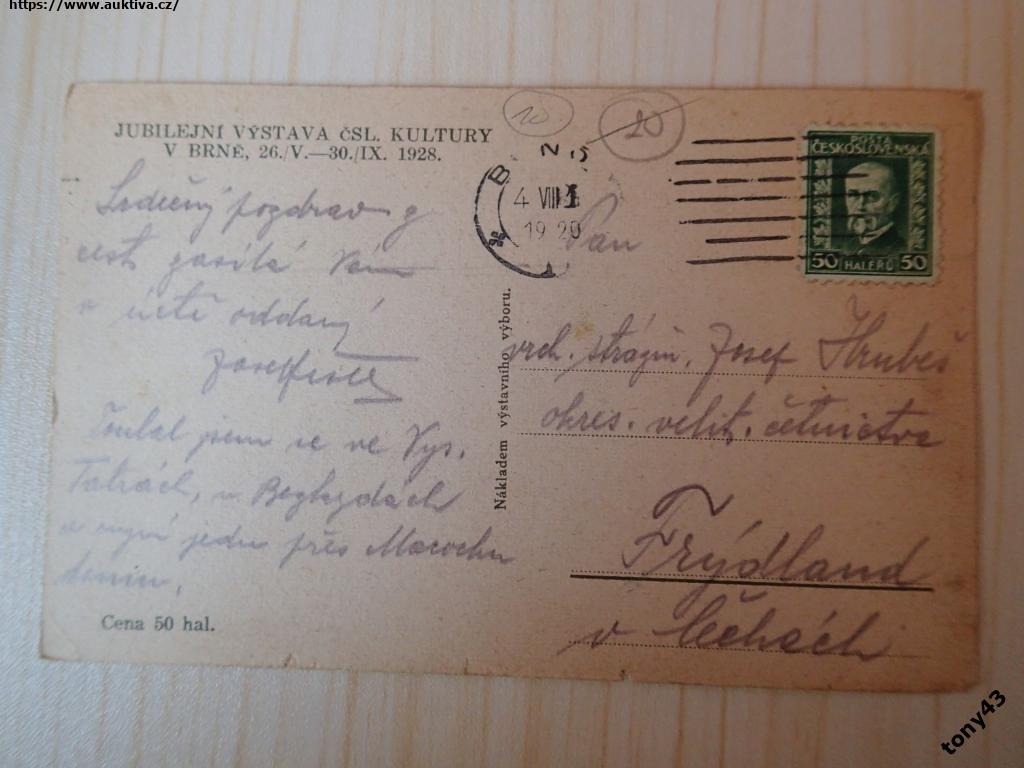 https://www.auktiva.cz/
JUBILEJNÍ VÝSTAVA ČSL. KULTURY
V BRNĚ, 26./V.—30./IX. 1928.
10
20
4 VIII
POŠTA
ČESKOSLOVENSKÁ
50 HALÉŘŮ 50
Srdečný pozdrav z
cest zasílá Vám
v úctě oddaný
Josef
Toulal jsem se ve Vys.
Tatrách, v Bezkydách
a nyní jedu přes Macochu
domů.
Cena 50 hal.
Nákladem výstavního výboru.
Pan
vrch. strážm. Josef Hrubeš
okres. velit. četnictva
Frýdland
v Čechách
tony43